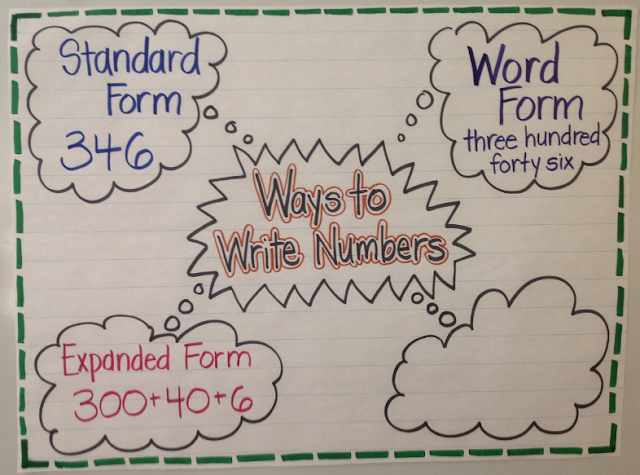 Standard
Form
346
Word
Form
three hundred
forty six
Ways to
Write Numbers
Expanded Form
300+40+6